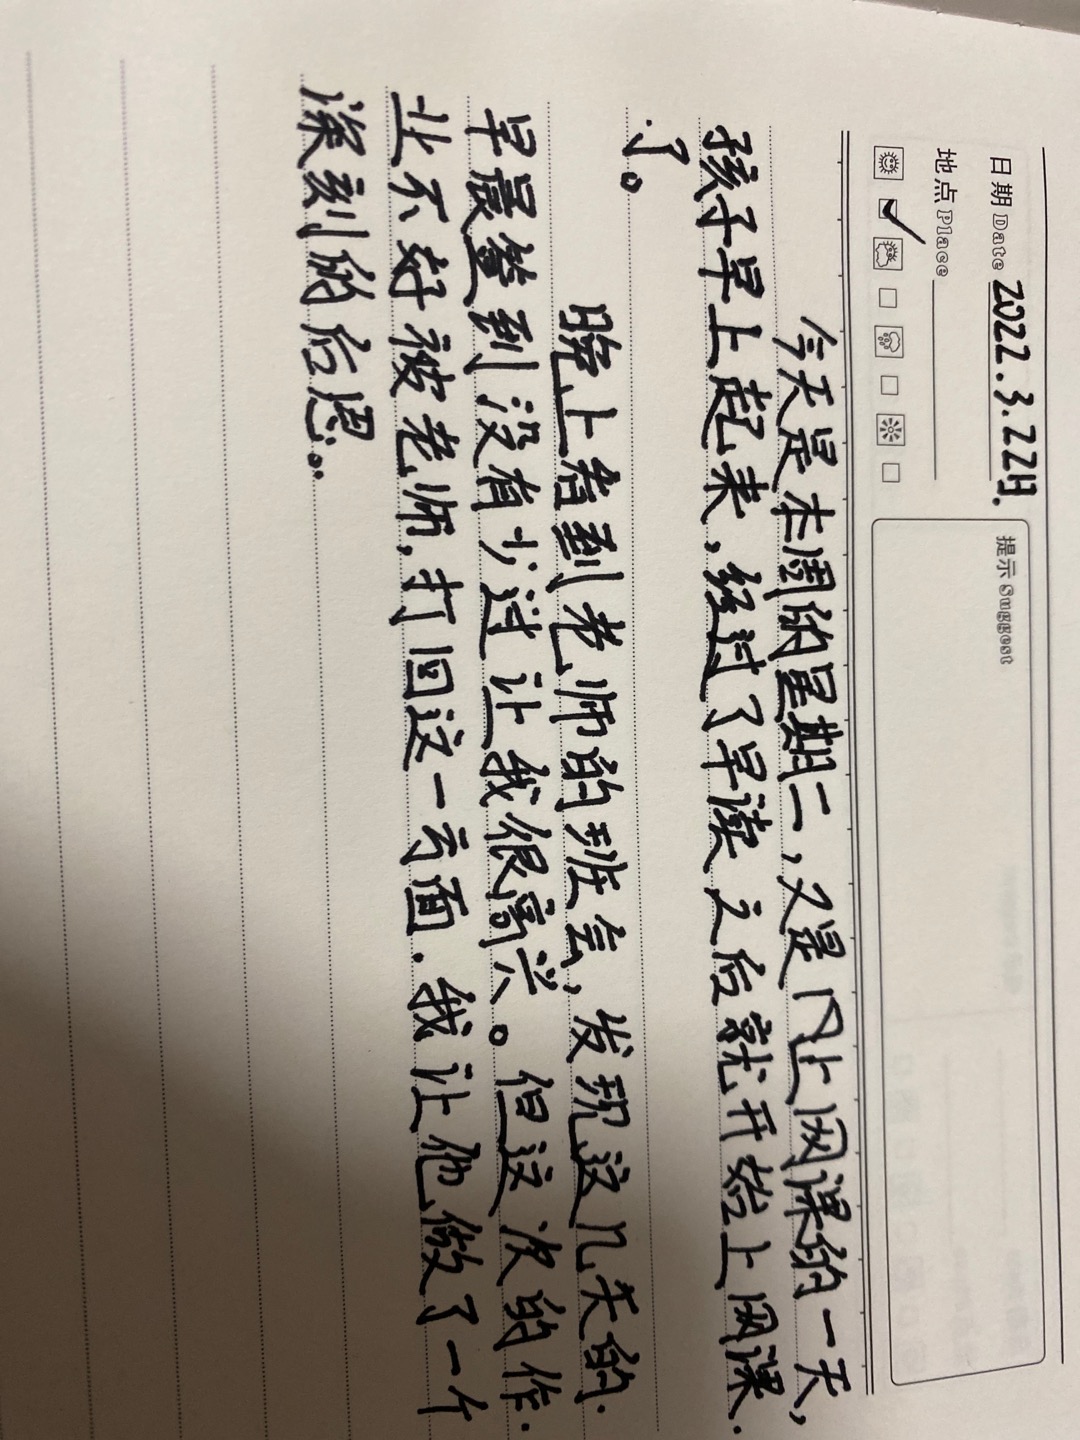 日期 Date 2022.3.22日.
提示 Suggest
地点 Place
今天是本周的星期二,又是上网课的一天,
孩子早上起来,经过了早读之后就开始上网课.
.了。
晚上看到老师的班会,发现这几天的.
早晨签到没有少过让我很高兴。但这次的作.
业不好被老师,打回这一方面.我让他做了一个
深刻的后思..